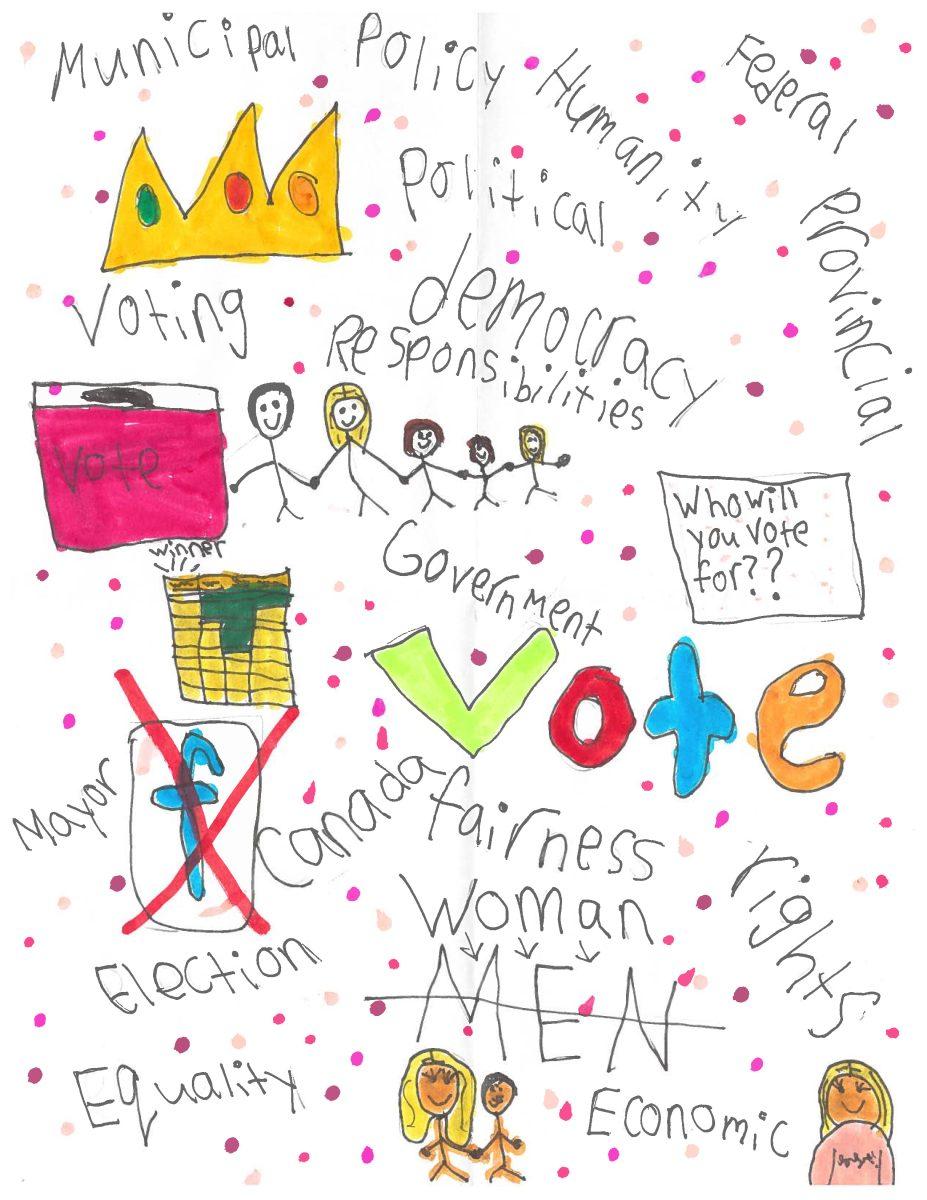 Municipal
Policy
Humanity
Federal
Political
Provincial
Voting
democracy
Responsibilities
Vote
Who will
you vote
for??
Government
winner
Vote
f
Mayor
Canada
fairness
rights
Woman
MEN
Election
Equality
Economic